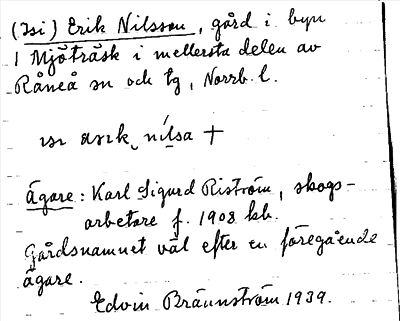 (Isi) Erik Nilsson, gård i byn
Mjöträsk i mellersta delen av
Råneå sn och tg, Norrb. l.
ɪsɪ ærɪk nílsa +
ägare: Karl Sigurd Riström, skogs-
arbetare f. 1908 kb.
Gårdsnamnet väl efter en föregående
ägare.
Edvin Brännström 1939.